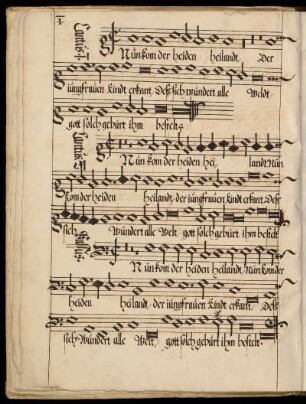 Nun kom der heiden heilandt, Der
jungfrauen Kindt erkant. Deß sich wundert alle Weldt
gott solch geburt ihm bestelt.
Nun kom der heiden hei landt Nun
Kom der heiden heilandt, der jungfrauen Kindt erkant. Deß
sich Wundert alle Welt gott solch geburt ihm bestelt
Nun kom der heiden heilandt, Nun Kom der
heiden heilandt, der jungfrauen Kindt erkant, Deß
sich Wundert alle Welt, gott solch geburt ihm bestelt.